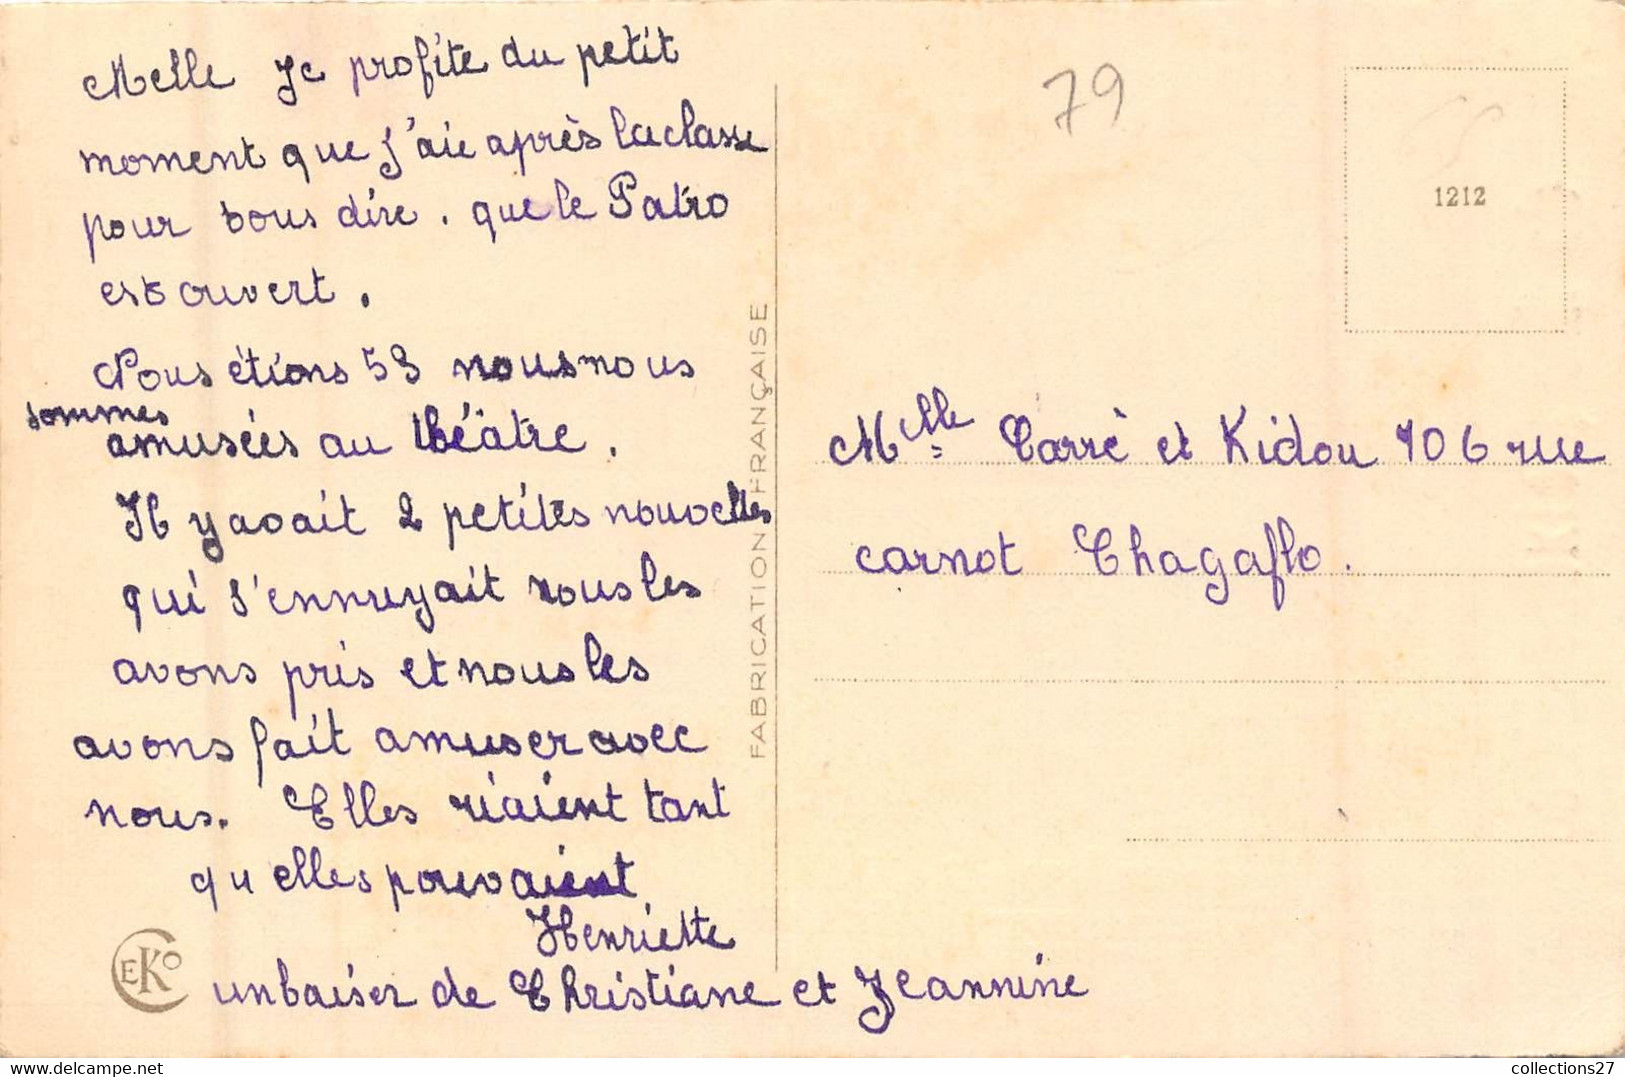 Melle Je profite du petit
moment que j'aie après la classe
pour vous dire. que le Patro
est ouvert.
Nous étions 53 nous nous
sommes
amusées au théâtre.
Il y avait 2 petites nouvelles
qui s'ennuyait nous les
avons pris et nous les
avons fait amuser avec
nous. Elles riaient tant
qu elles pouvaient
Henriette
un baiser de Christiane et Jeannine
CEKO
FABRICATION FRANÇAISE
79
1212
Melle Carré et Kidou 106 rue
carnot Chagaflo.
collections27